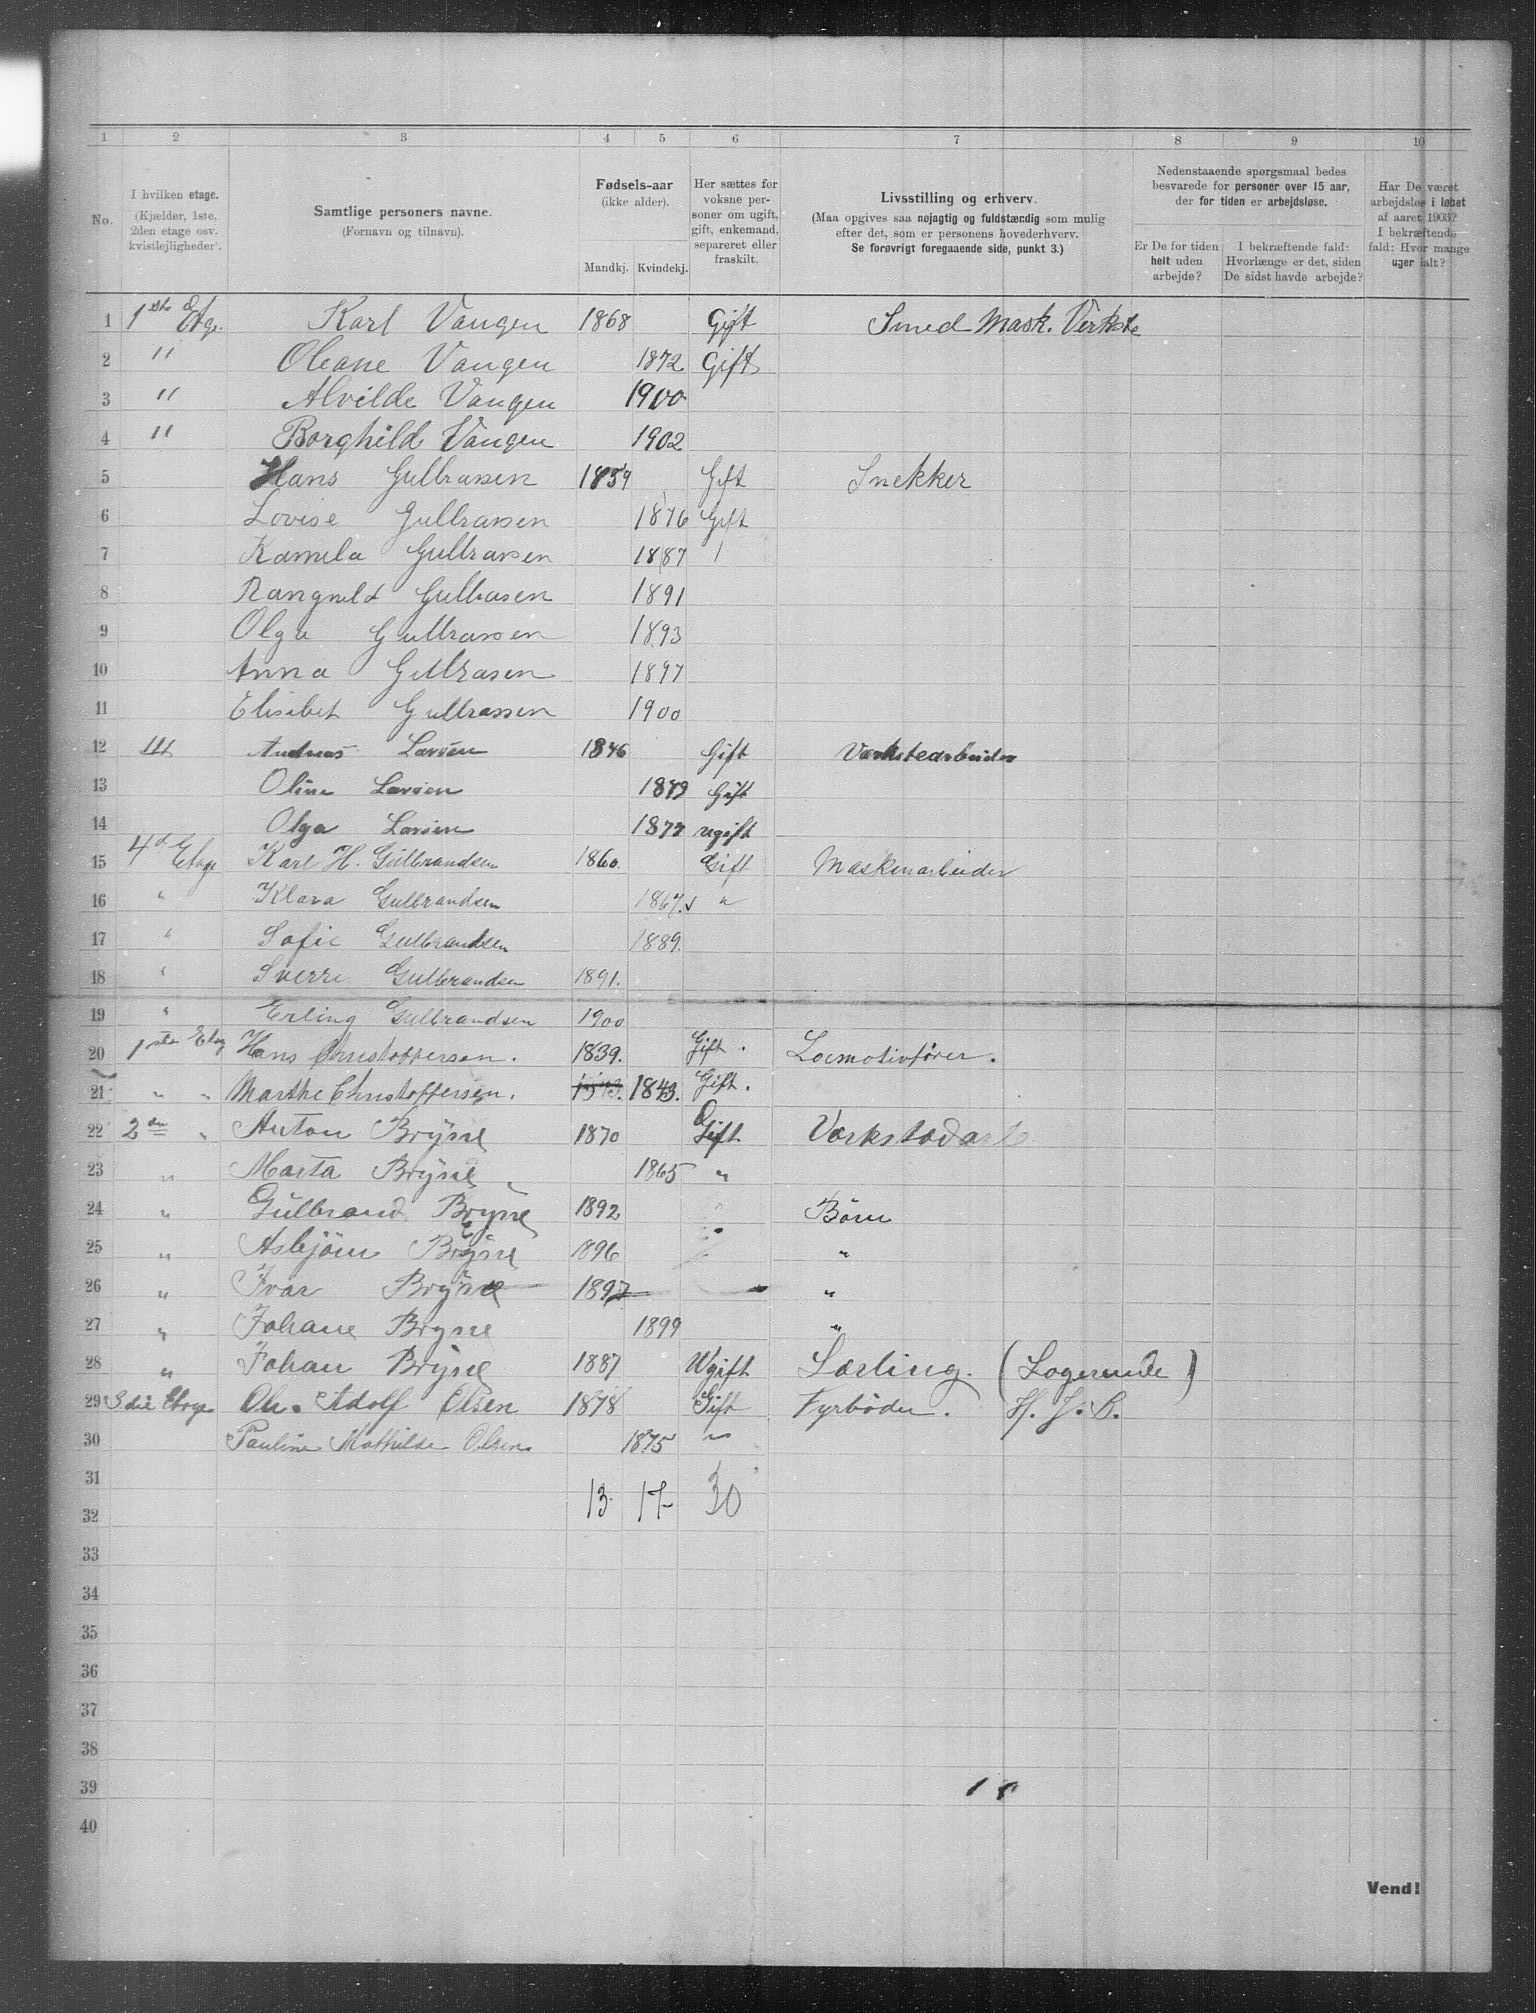 1 2 3 4 5 6 7 8 9 10
No.
I hvilken etage.
(Kjælder, 1ste,
2den etage osv.
kvistlejligheder).
Samtlige personers navne.
(Fornavn og tilnavn).
Fødsels-aar
(ikke alder).
Mandkj. Kvindekj.
Her sættes for
voksne per-
soner om ugift,
gift, enkemand,
separeret eller
fraskilt.
Livsstilling og erhverv.
(Maa opgives saa nøjagtig og fuldstændig som mulig
efter det, som er personens hovederhverv.
Se forøvrigt foregaaende side, punkt 3.)
Nedenstaaende spørgsmaal bedes
besvarede for personer over 15 aar,
der for tiden er arbejdsløse.
Er De for tiden
helt uden
arbejde?
I bekræftende fald:
Hvorlænge er det, siden
De sidst havde arbejde?
Har De været
arbejdsløs i løbet
af aaret 1903?
I bekræftende
fald: Hvor mange
uger ialt?
1 1ste Etg. Karl Vangen 1868 Gift Smed Mask. Verkste
2 " Oleane Vangen 1872 Gift
3 " Alvilde Vangen 1900
4 " Borghild Vangen 1902
5 Hans Gulbrassen 1859 Gift Snekker
6 Lovise Gulbrassen 1876 Gift
7 Kamela Gulbrassen 1887
8 Rangnild Gulbrasen 1891
9 Olga Gulbrassen 1893
10 Anna Gulbrasen 1897
11 Elisabet Gulbrassen 1900
12 Andreas Larsen 1846 Gift Værkstedarbeider
13 Oline Larsen Gift
14 Olga Larsen 1877 ugift
15 4de Etage Karl H. Gulbrandsen 1860. Gift Maskinarbeider
16 " Klara Gulbrandsen 1867. "
17 " Sofie Gulbrandsen 1889.
18 " Sverre Gulbrandsen 1891.
19 " Erling Gulbrandsen 1900
20 1ste Etag Hans Christoffersen. 1839. Gift. Locmotivfører.
21 " " Marthe Christoffersen. 1843. Gift.
22 2den " Anton Brysse 1870 Gift Værkstodarb
23 " Marta Brysse " 1865 "
24 " Gulbrand Brysse 1892 Børn
25 " Asbjörn Brysse 1896 "
26 " Ivar Brysse 1897 "
27 " Johane Brysse 1899 "
28 " Johan Brysse 1887 Ugift Lærling. (Logerende)
29 3die Etage Ole. Adolf Olsen 1878 Gift Fyrbøder. H. J. B.
30 Pauline Mathilde Olsen 1875 "
31
32 13 17 30
33
34
35
36
37
38
39
40
Vend!